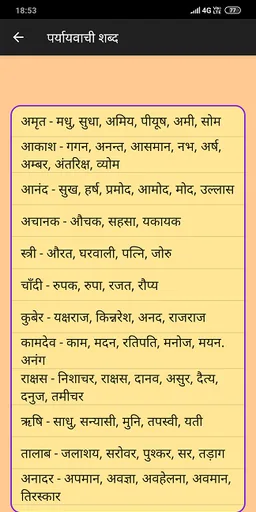 18:53
4G
77
पर्यायवाची शब्द
अमृत - मधु, सुधा, अमिय, पीयूष, अमी, सोम
आकाश - गगन, अनन्त, आसमान, नभ, अर्ष,
अम्बर, अंतरिक्ष, व्योम
आनंद - सुख, हर्ष, प्रमोद, आमोद, मोद, उल्लास
अचानक - औचक, सहसा, यकायक
स्त्री - औरत, घरवाली, पत्नि, जोरु
चाँदी - रुपक, रुपा, रजत, रौप्य
कुबेर - यक्षराज, किन्नरेश, अनद, राजराज
कामदेव - काम, मदन, रतिपति, मनोज, मयन.
अनंग
राक्षस - निशाचर, राक्षस, दानव, असुर, दैत्य,
दनुज, तमीचर
ऋषि - साधु, सन्यासी, मुनि, तपस्वी, यती
तालाब - जलाशय, सरोवर, पुश्कर, सर, तड़ाग
अनादर - अपमान, अवज्ञा, अवहेलना, अवमान,
तिरस्कार